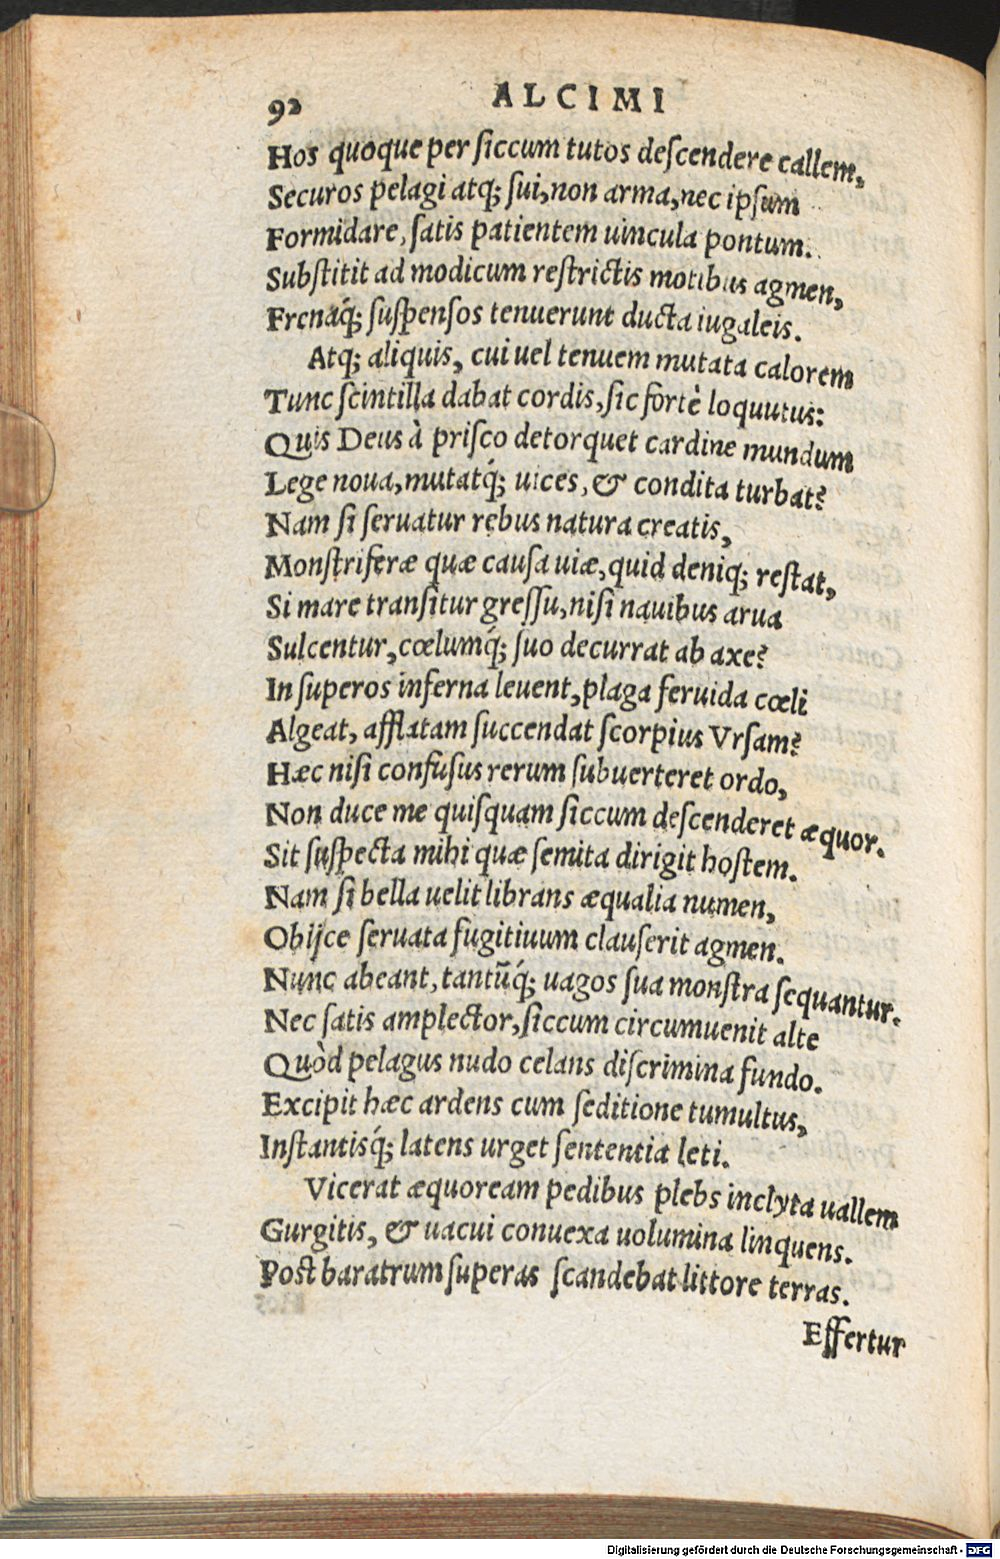 92 ALCIMI
Hos quoque per ſiccum tutos deſcendere callem,
Securos pelagi atq; ſui, non arma, nec ipſum
Formidare, ſatis patientem uincula pontum.
Subſtitit ad modicum reſtrictis motibus agmen,
Frenaq́; ſuſpenſos tenuerunt ducta iugaleis.
Atq; aliquis, cui uel tenuem mutata calorem
Tunc ſcintilla dabat cordis, ſic fortè loquutus:
Quis Deus à priſco detorquet cardine mundum
Lege noua, mutatq́; uices, & condita turbat?
Nam ſi ſeruatur rebus natura creatis,
Monſtriferæ quæ cauſa uiæ, quid deniq; reſtat,
Si mare tranſitur greſſu, niſi nauibus arua
Sulcentur, cœlumq́; ſuo decurrat ab axe?
In ſuperos inferna leuent, plaga feruida cœli
Algeat, afflatam ſuccendat ſcorpius Vrſam?
Hæc niſi confuſus rerum ſubuerteret ordo,
Non duce me quiſquam ſiccum deſcenderet æquor.
Sit ſuſpecta mihi quæ ſemita dirigit hoſtem.
Nam ſi bella uelit librans æqualia numen,
Obijce ſeruata fugitiuum clauſerit agmen.
Nunc abeant, tantũq́; uagos ſua monſtra ſequantur.
Nec ſatis amplector, ſiccum circumuenit alte
Quòd pelagus nudo celans diſcrimina fundo.
Excipit hæc ardens cum ſeditione tumultus,
Inſtantisq́; latens urget ſententia leti.
Vicerat æquoream pedibus plebs inclyta uallem
Gurgitis, & uacui conuexa uolumina linquens.
Poſt baratrum ſuperas ſcandebat littore terras.
Effertur
Digitalisierung gefördert durch die Deutsche Forschungsgemeinschaft - DFG